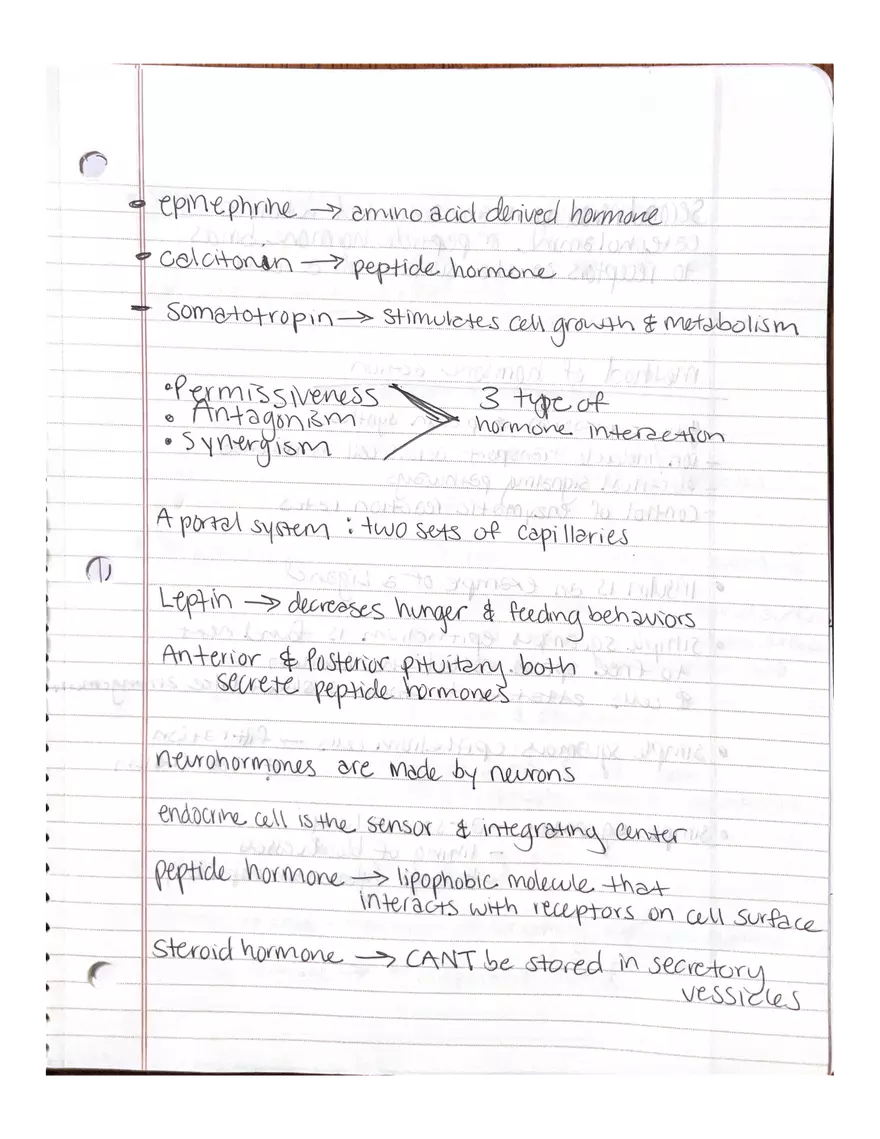 • epinephrine → amino acid derived hormone
• calcitonin → peptide hormone
- somatotropin → stimulates cell growth & metabolism
• Permissiveness
• Antagonism
• Synergism
3 type of
hormone interaction
A portal system : two sets of capillaries
Leptin → decreases hunger & feeding behaviors
Anterior & Posterior pituitary both
secrete peptide hormones
neurohormones are made by neurons
endocrine cell is the sensor & integrating center
peptide hormone → lipophobic molecule that
interacts with receptors on cell surface
Steroid hormone → CANT be stored in secretory
vessicles